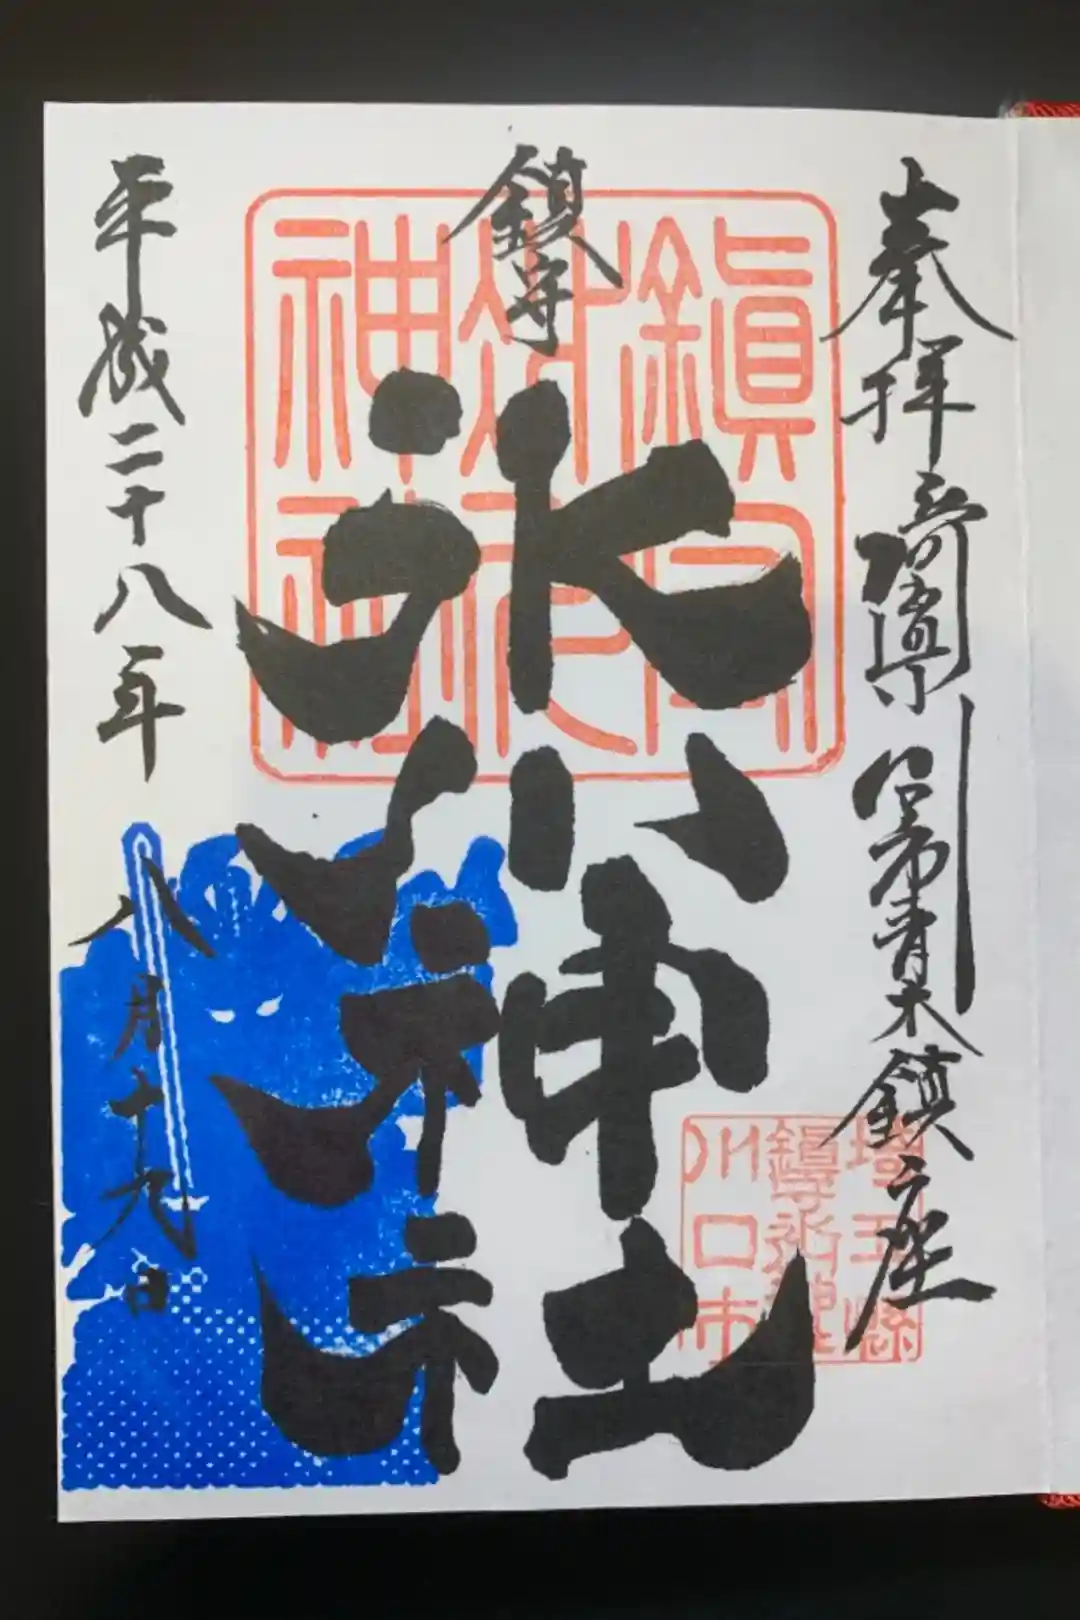 奉拝 埼玉県川口市青木鎮座
鎮守
氷川神社
平成二十八年 八月十九日
鎮守
氷川
神社
埼玉縣
鎮守氷川神社
川口市